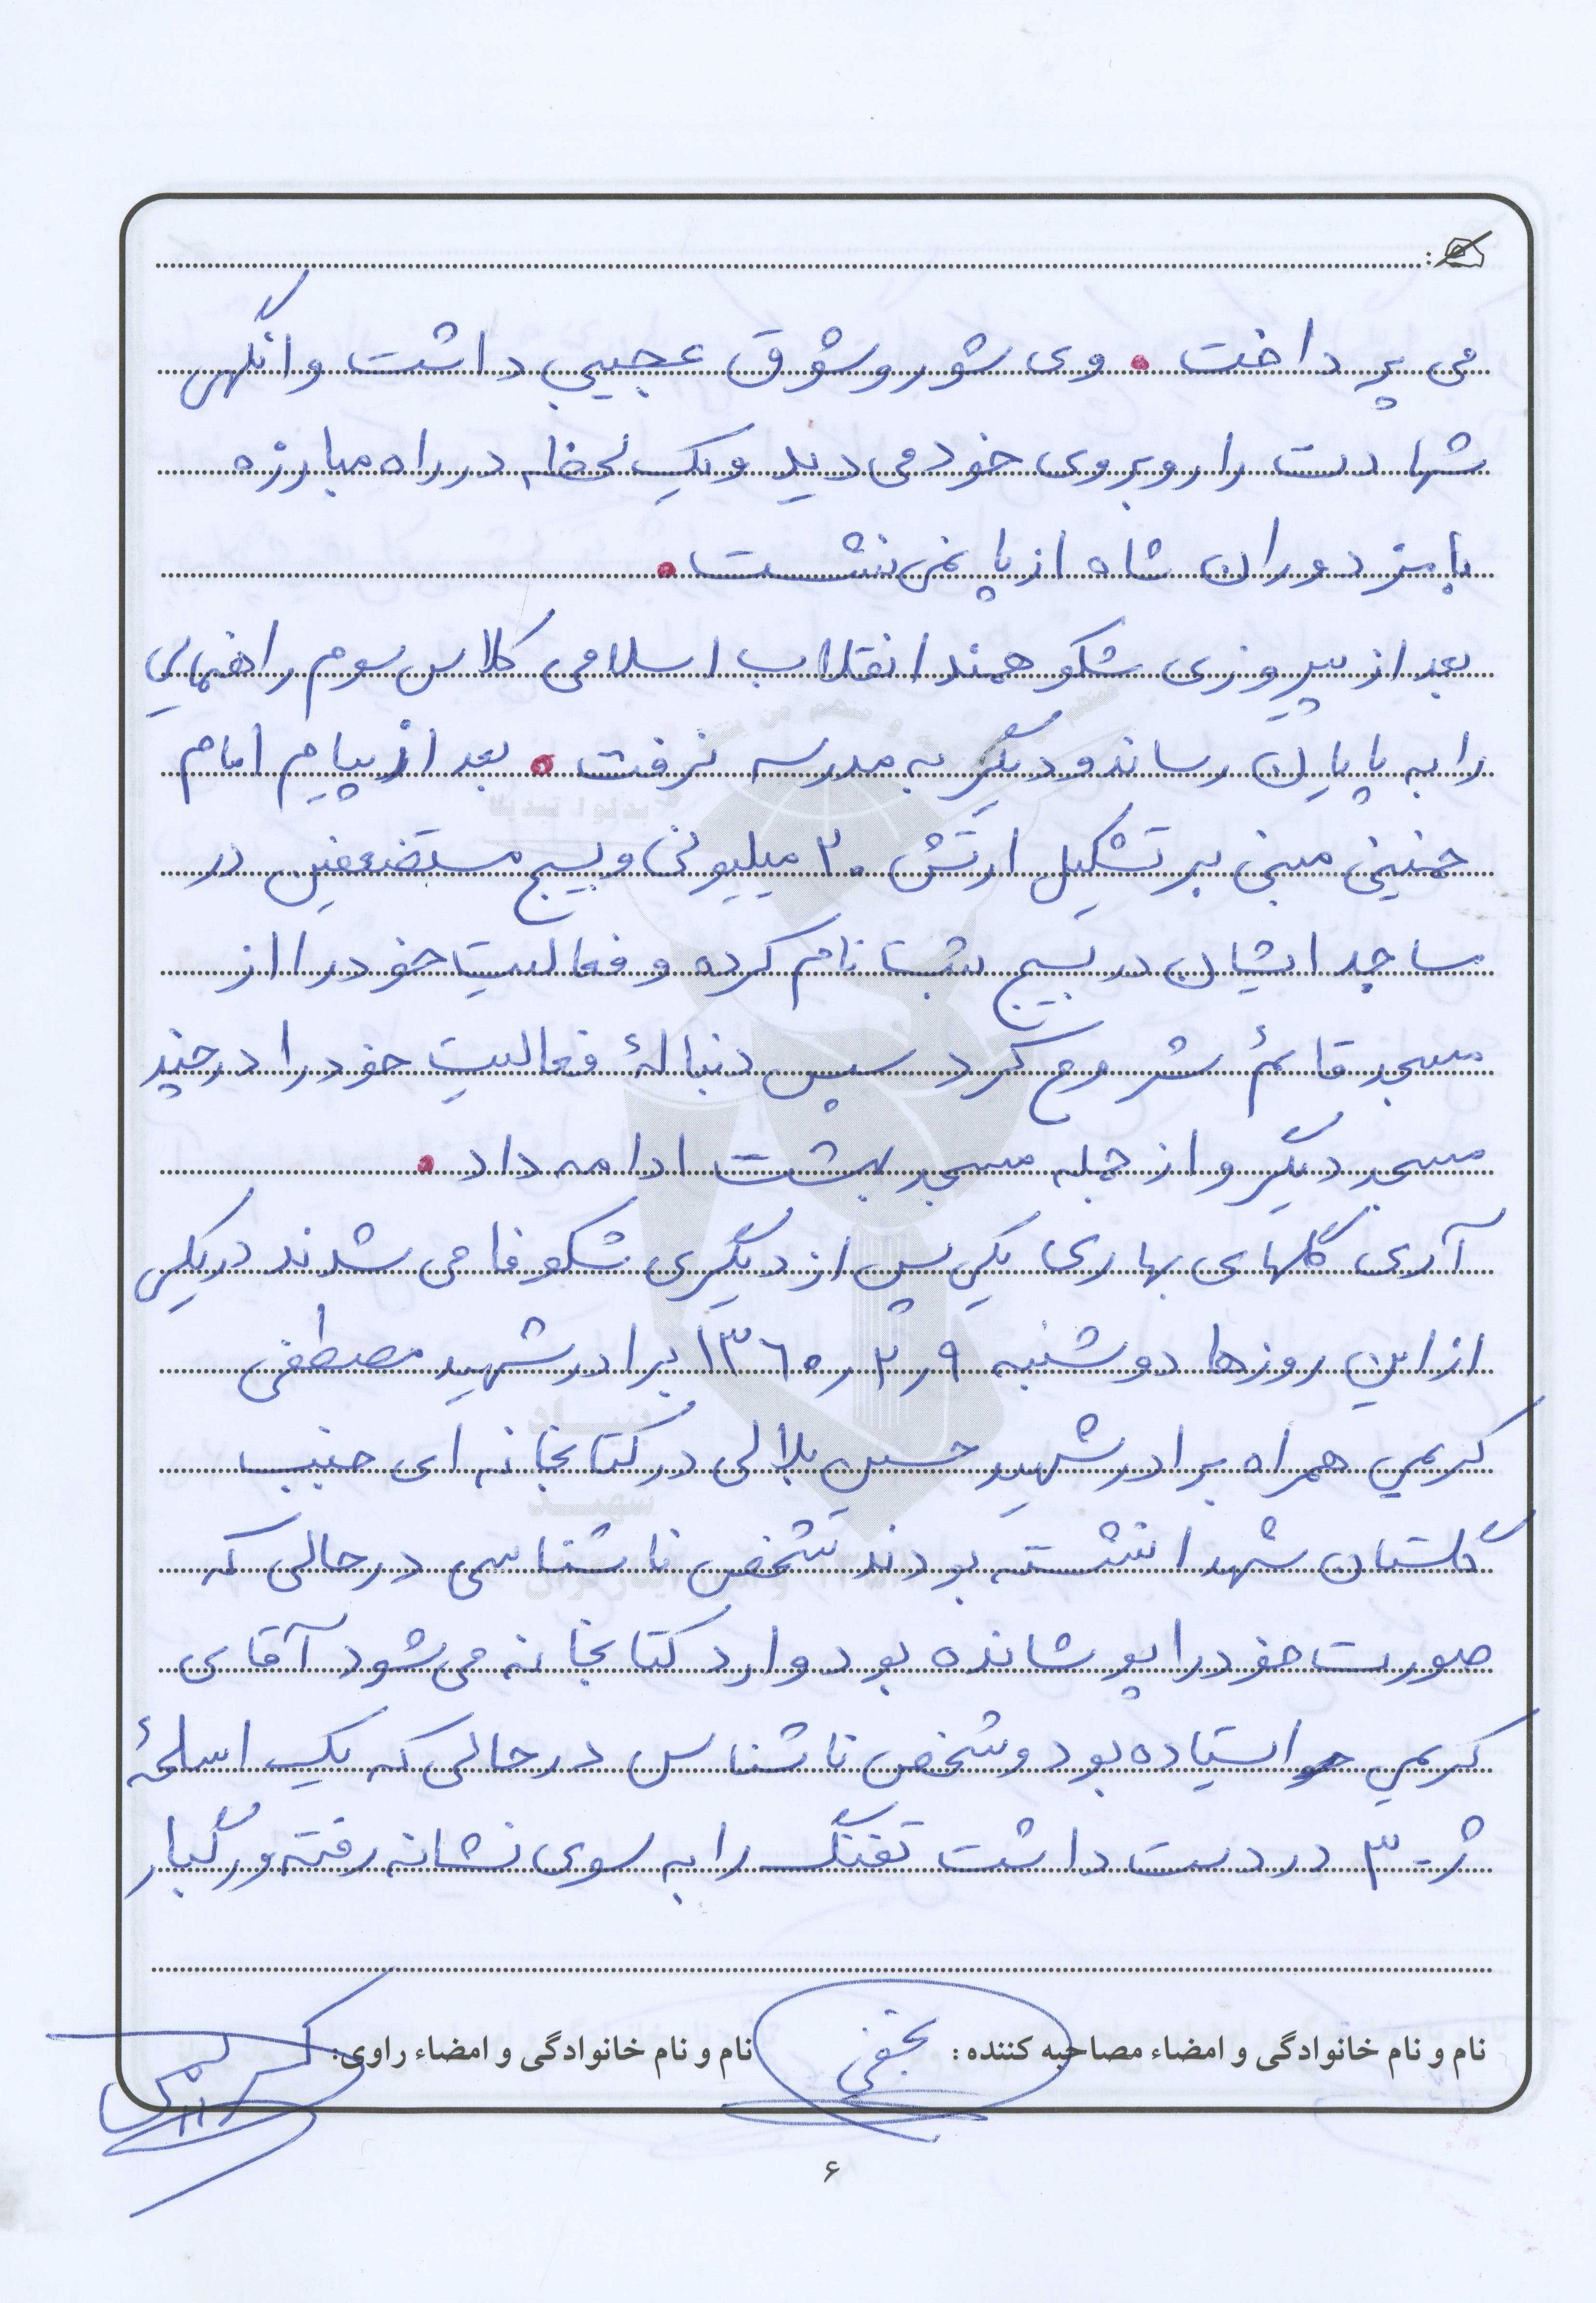 می پرداخت . وی شور و شوق عجیبی داشت و انگهی
شهادت را روبروی خود می دید و یک لحظه در راه مبارزه
با یزد دوران شاه از پا نمی ننشست .
بعد از پیروزی شکوهمند انقلاب اسلامی کلاس سوم راهنمایی
را به پایان رساند و دیگر به مدرسه نرفت . بعد از پیام امام
خمینی مبنی بر تشکیل ارتش ۲۰ میلیونی و بسیج مستضعفین در
مساجد ایشان در بسیج ثبت نام کرده و فعالیت خود را از
مسجد قائم شروع کرد سپس دنبالۀ فعالیت خود را در چند
مسجد دیگر و از جمله مسجد بهشت ادامه داد .
آری گلهای بهاری یکی پس از دیگری شکوفا می شدند در یکی
از این روزها دوشنبه ۹ر۲ر۱۳۶۰ برادر شهید مصطفی
کریمی همراه برادر شهید حسین بلالی در کتابخانه ای جنب
گلستان شهدا نشسته بودند شخص ناشناسی در حالی که
صورت خود را پوشانده بود وارد کتابخانه می شود آقای
کریمی ایستاده بود و شخص ناشناس در حالی که یک اسلحۀ
ژ-۳ در دست داشت تفنگ را به سوی نشانه رفته و رگبار
نام و نام خانوادگی و امضاء مصاحبه کننده : نجفی نام و نام خانوادگی و امضاء راوی: کریمی
۶